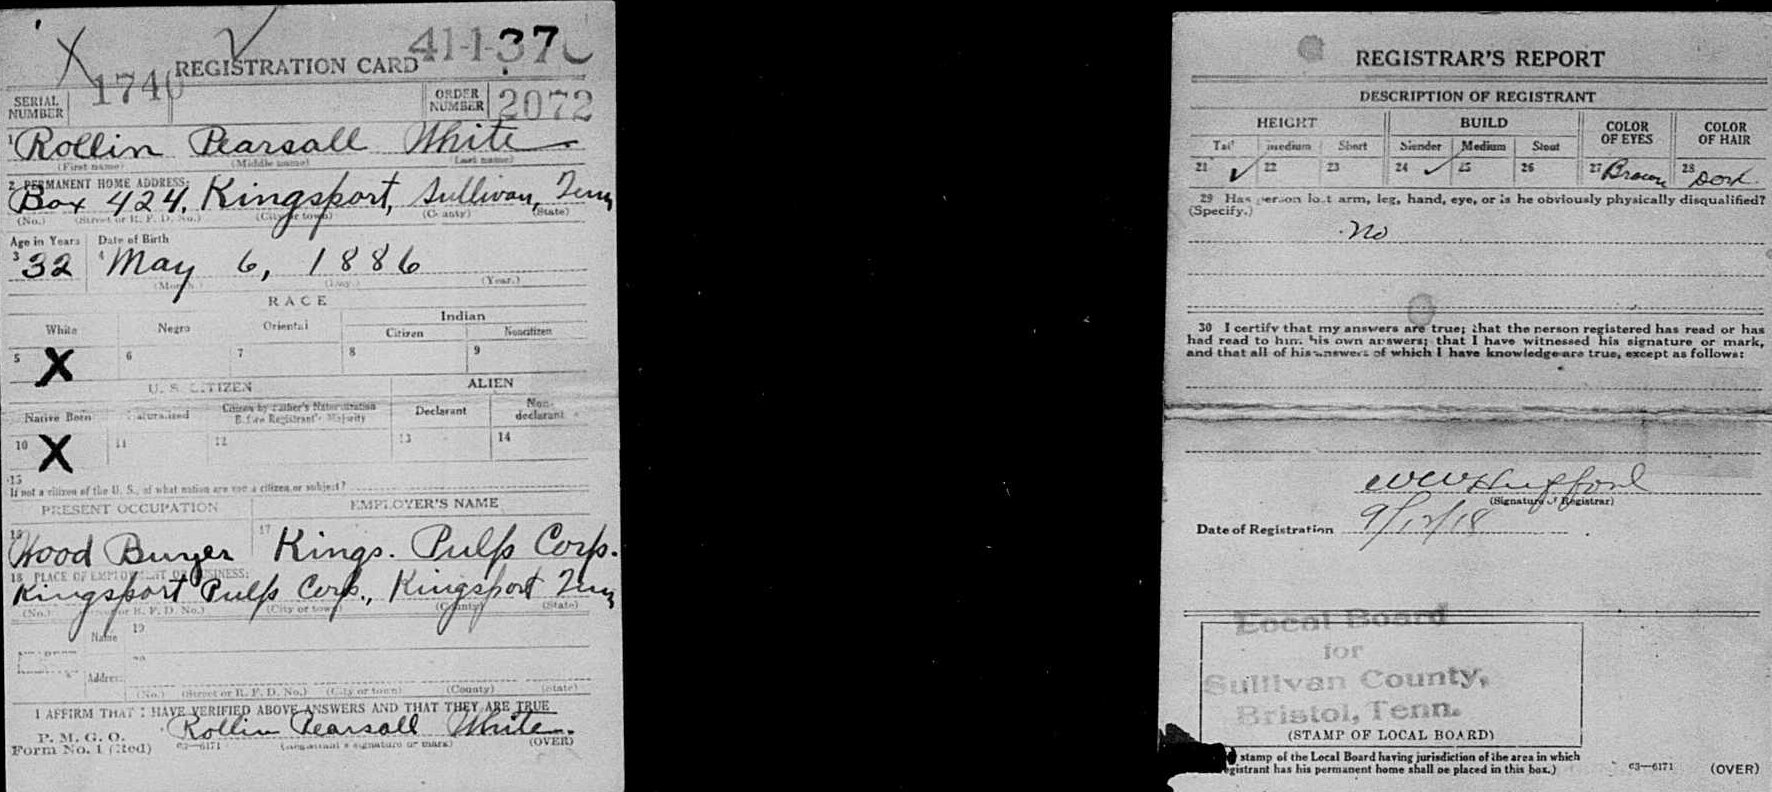 41-1-37 C
REGISTRATION CARD
SERIAL NUMBER 1740 ORDER NUMBER 2072
1 Rollin Pearsall White
(First name) (Middle name) (Last name)
2 PERMANENT HOME ADDRESS:
Box 424, Kingsport, Sullivan, Tenn
(No.) (Street or R. F. D. No.) (City or town) (County) (State)
Age in Years Date of Birth
3 32 4 May 6, 1886
(Month.) (Day.) (Year.)
RACE
White Negro Oriental Indian
Citizen Noncitizen
5 X 6 7 8 9
U. S. CITIZEN ALIEN
Native Born Naturalized Citizen by Father's Naturalization Before Registrant's Majority Declarant Non-declarant
10 X 11 12 13 14
15
If not a citizen of the U. S., of what nation are you a citizen or subject?
PRESENT OCCUPATION EMPLOYER'S NAME
16 Wood Buyer 17 Kings. Pulp Corp.
18 PLACE OF EMPLOYMENT OR BUSINESS:
Kingsport Pulp Corp., Kingsport Tenn
(No.) (Street or R. F. D. No.) (City or town) (County) (State)
Name 19
20
Address
(No.) (Street or R. F. D. No.) (City or town) (County) (State)
I AFFIRM THAT I HAVE VERIFIED ABOVE ANSWERS AND THAT THEY ARE TRUE
P. M. G. O.
Form No. 1 (Red) 03—6171 Rollin Pearsall White.
(Registrant's signature or mark) (OVER)
REGISTRAR'S REPORT
DESCRIPTION OF REGISTRANT
HEIGHT BUILD COLOR OF EYES COLOR OF HAIR
Tall Medium Short Slender Medium Stout
21 ✓ 22 23 24 ✓ 25 26 27 Brown 28 Dark
29 Has person lost arm, leg, hand, eye, or is he obviously physically disqualified?
(Specify.)
No
30 I certify that my answers are true; that the person registered has read or has
had read to him his own answers; that I have witnessed his signature or mark,
and that all of his answers of which I have knowledge are true, except as follows:
(Signature of Registrar)
Date of Registration 9/12/18
Local Board
for
Sullivan County,
Bristol, Tenn.
(STAMP OF LOCAL BOARD)
stamp of the Local Board having jurisdiction of the area in which
registrant has his permanent home shall be placed in this box.)
03—6171 (OVER)